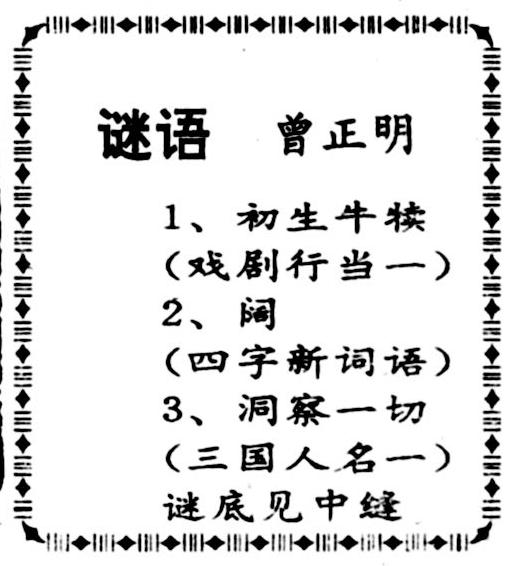 谜语 曾正明
1、初生牛犊
(戏剧行当一)
2、阔
(四字新词语)
3、洞察一切
(三国人名一)
谜底见中缝